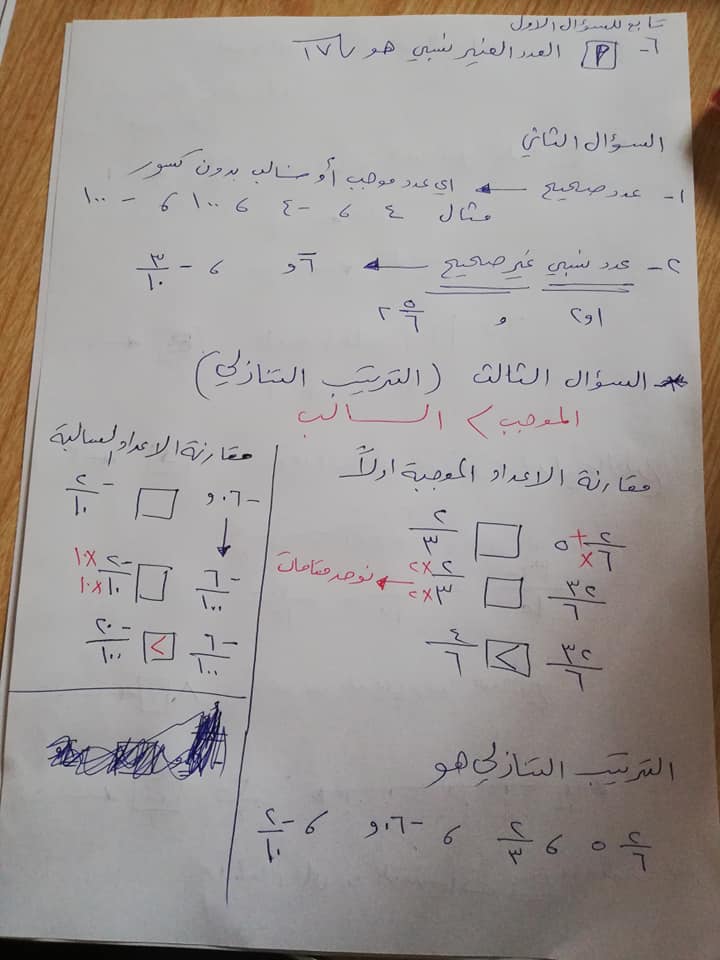 تابع للسؤال الاول
٦- أ العدد الغير نسبي هو √١٧
السؤال الثاني
١- عدد صحيح ← اي عدد موجب أو سالب بدون كسور
مثال ٤ ، -٤ ، ١٠٠ ، -١٠٠
٢- عدد نسبي غير صحيح ← ، -٣/١٠
و ٢ ٥/٦
* السؤال الثالث (الترتيب التنازلي)
الموجب > السالب
مقارنة الاعداد الموجبة اولاً
٥ ٢/٦ □ ٢/٣
٣٢/٦ □ ٢×٢/٣×٢ ← نوحد مقامات
٣٢/٦ > ٤/٦
مقارنة الاعداد السالبة
-٠٦و □ -٢/١٠
-٦/١٠٠ □ -٢×١٠/١٠×١٠
-٦/١٠٠ > -٢٠/١٠٠
الترتيب التنازلي هو
٥ ٢/٦ ، ٢/٣ ، -٠٦و ، -٢/١٠